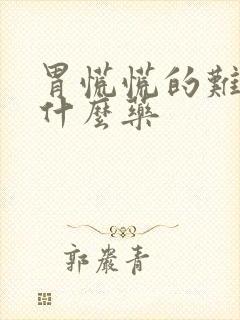 胃慌慌的難
什麼藥
郭嚴青